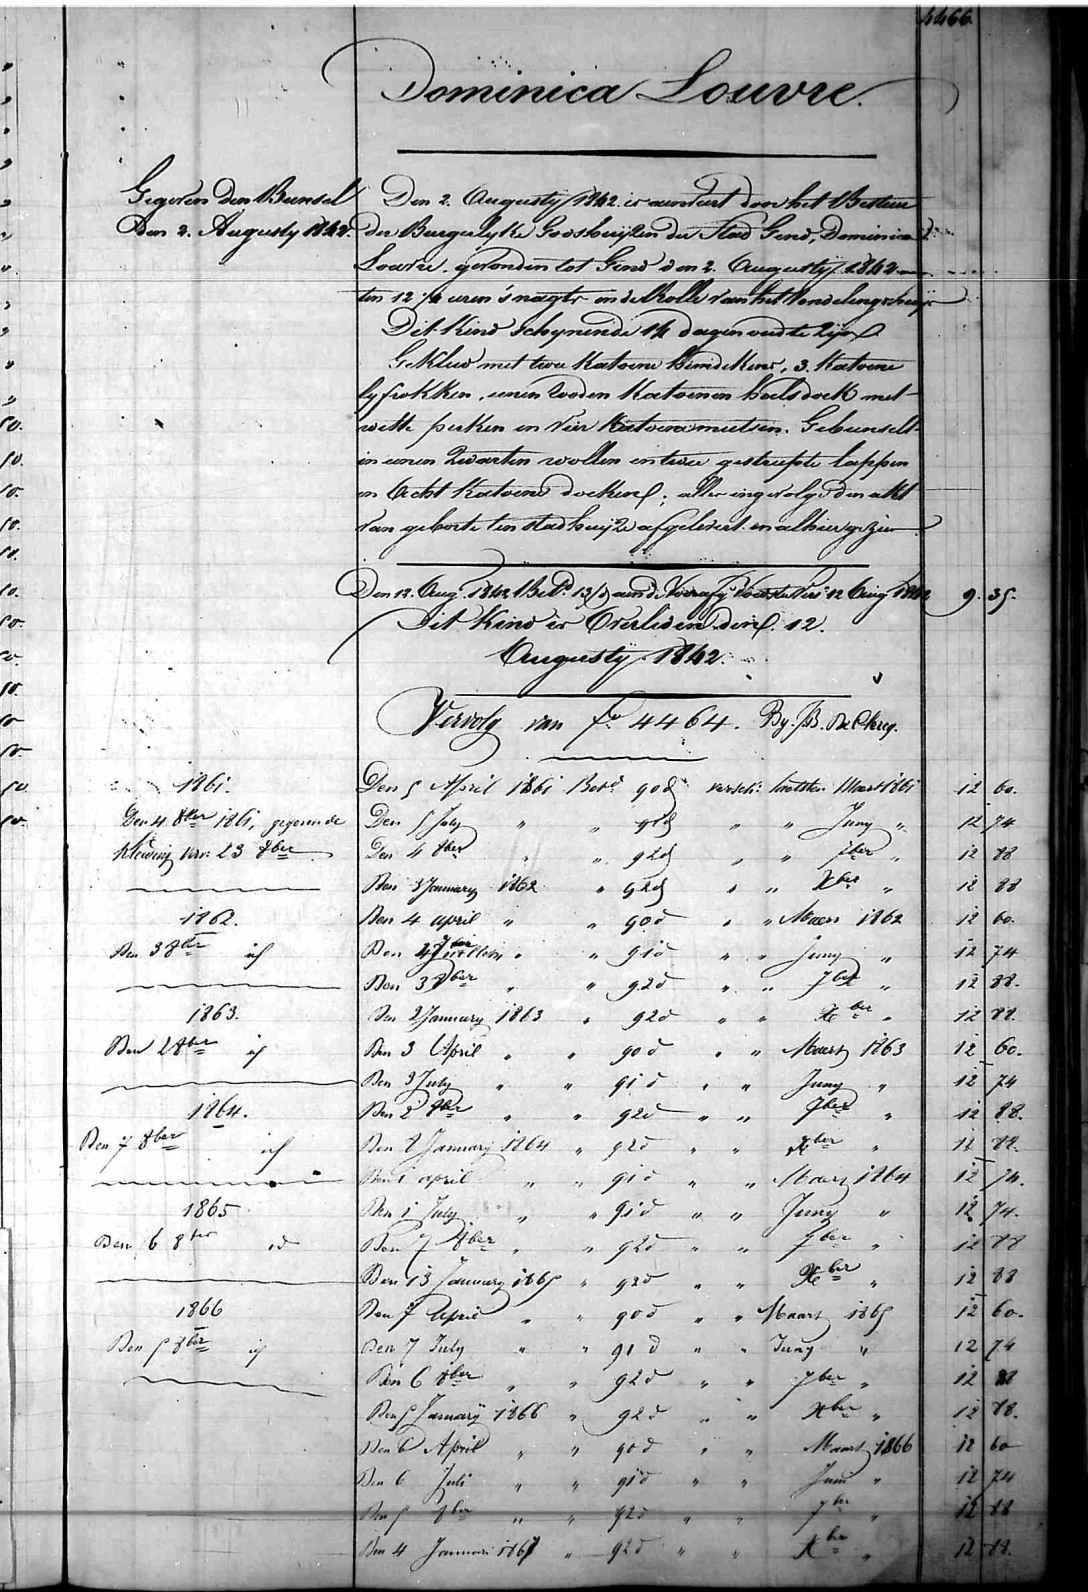 4466
Dominica Louvre.
Gegeven den Bunsel
den 2. Augusty 1842.
Den 2. Augusty 1842 is aenveert door het Bestier
der Burgerlyke Godshuyzen der Stad Gend, Dominica
Louvre gevonden tot Gend den 2. Augusty 1842
ten 12 1/4 uren 's nagts in de Rolle van het Vondelingshuys
Dit Kind schynende 14 dagen oud te zyn
Gekleed met twee Katoene hemdekens, 3. Katoene
lyfrokken, eenen Rooden Katoenen halsdoek met
witte perken en vier Katoene mutsen. Gebunselt
in eenen Zwarten wollen en twee gestreepte lappen
en Acht Katoene doeken; alles ingevolge den akt
van geboorte ten stadhuyze afgelevert en alhier gezien
Den 12 Aug. 1842 Bet.d 13/d aan de 12 Aug 1842 9. 35.
Dit Kind is Overleden den 12.
Augusty 1842.
Vervolg van f.o 4464. By. J.B.
1861.
Den 4 8ber 1861, gegeven de
Kleeding van 23 8ber
1862.
Den 3 8ber id
1863.
Den 2 8ber id
1864.
Den 7 8ber id
1865
Den 6 8ber id
1866
Den 5 8ber id
Den 5 April 1861 Bet.d 90d versch: laetsten Maert 1861 12 60.
Den 5 July " " 91d " " Juny " 12 74
Den 4 8ber " " 92d " " 7ber " 12 88
Den 3 January 1862 " 92d " " Xber " 12 88
Den 4 april " " 90d " " Maers 1862 12 60.
Den 4 " " 91d " " Juny " 12 74
Den 3 8ber " " 92d " " 7ber " 12 88.
Den 2 January 1863 " 92d " " Xber " 12 88.
Den 3 April " " 90d " " Maert 1863 12 60.
Den 3 July " " 91d " " Juny " 12 74
Den 2 8ber " " 92d " " 7ber " 12 88.
Den 8 January 1864 " 92d " " Xber " 12 88.
Den 1 april " " 91d " " Maert 1864 12 74.
Den 1 July " " 91d " " Juny " 12 74.
Den 7 8ber " " 92d " " 7ber " 12 88
Den 13 January 1865 " 92d " " Xber " 12 88
Den 7 April " " 90d " " Maart 1865 12 60.
Den 7 July " " 91d " " Juny " 12 74
Den 6 8ber " " 92d " " 7ber " 12 88
Den 5 January 1866 " 92d " " Xber " 12 88.
Den 6 April " " 90d " " Maart 1866 12 60
Den 6 Juli " " 91d " " Juni " 12 74
Den 5 8ber " " 92d " " 7ber " 12 88
Den 4 Januari 1867 " 92d " " Xber " 12 88.